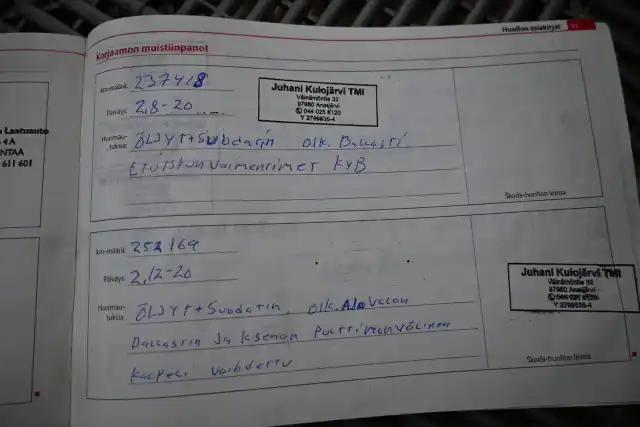 Huollon asiakirjat
Korjaamon muistiinpanot
km-määrä: 237418
Päiväys: 2,8-20
Juhani Kulojärvi TMI
Väinämöntie 32
97980 Anetjärvi
044 025 6120
Y 2799835-4
Huomau-
tuksia: ÖLJYT+Suodatin olk. Ballasti
ETUISKUNVaimentimet KYB
Skoda-huollon leima
a Laatuauto
4 A
NTAA
611 601
km-määrä: 252169
Päiväys: 2,12-20
Juhani Kulojärvi TMI
Väinämöntie 32
97980 Anetjärvi
044 025 6120
Y 2799835-4
Huomau-
tuksia: ÖLJYT+Suodatin, olk. AloValon
Ballastin Ja Ksenon Polttimon Välinen
Kaapeli Vaihdettu
Skoda-huollon leima